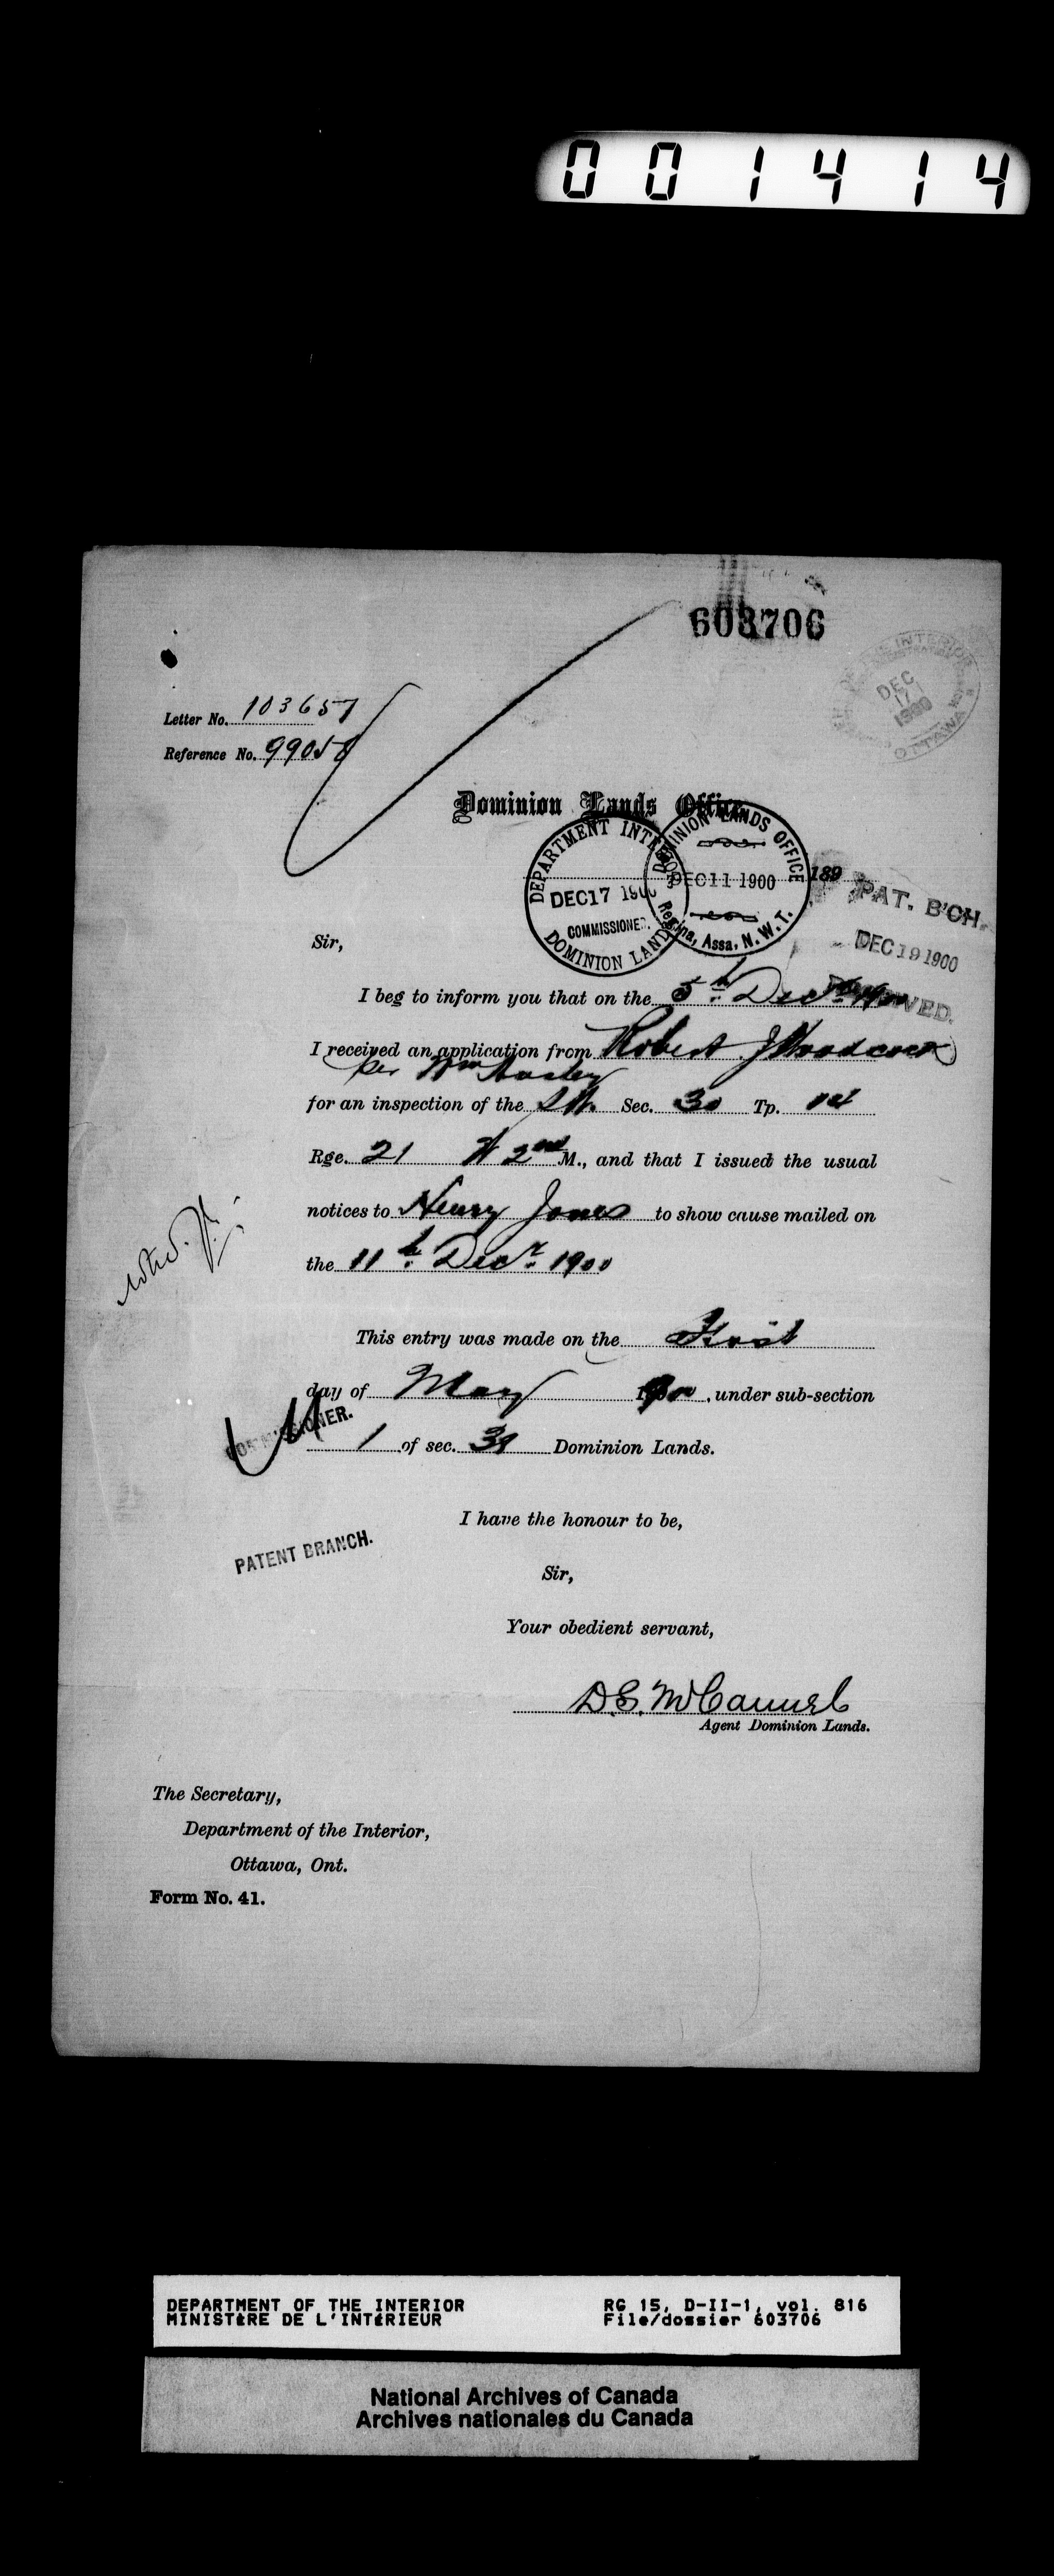 001414
603706
DEPT. OF THE INTERIOR
DEC
17
1900
OTTAWA
Letter No. 103657
Reference No. 99058
Dominion Lands Office
DEPARTMENT INTERIOR
DEC 17 1900
COMMISSIONER.
DOMINION LANDS
DOMINION LANDS OFFICE
DEC 11 1900
Regina, Assa, N.W.T.
189
PAT. B'CH.
DEC 19 1900
RECEIVED.
Sir,
I beg to inform you that on the 5th Decr 1900
I received an application from Robert J Woodcock
per Wm
for an inspection of the Sec. 30 Tp. 14
Rge. 21 W 2nd M., and that I issued the usual
notices to Henry Jones to show cause mailed on
the 11th Decr 1900
noted.
This entry was made on the First
day of May 1900, under sub-section
COMMISSIONER.
1 of sec. Dominion Lands.
I have the honour to be,
PATENT BRANCH.
Sir,
Your obedient servant,
D.S. McCannel
Agent Dominion Lands.
The Secretary,
Department of the Interior,
Ottawa, Ont.
Form No. 41.
DEPARTMENT OF THE INTERIOR RG 15, D-II-1, vol. 816
MINISTÈRE DE L'INTÉRIEUR File/dossier 603706
National Archives of Canada
Archives nationales du Canada